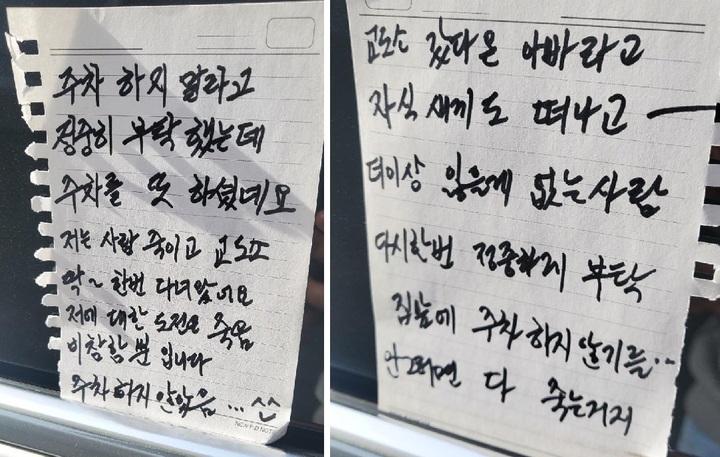 주차 하지 말라고
정중히 부탁 했는데
주차를 또 하셨네요
저는 사람 죽이고 교도소
딱~ 한번 다녀왔어요
저에 대한 도전은 죽음
이창항 뿐 입니다
주차하지 안았음...^^
교도소 갔다온 아빠라고
자식 새끼도 떠나고
더이상 잃을게 없는사람
다시한번 정중하게 부탁
집앞에 주차하지 않기를..
안그러면 다 죽는거지